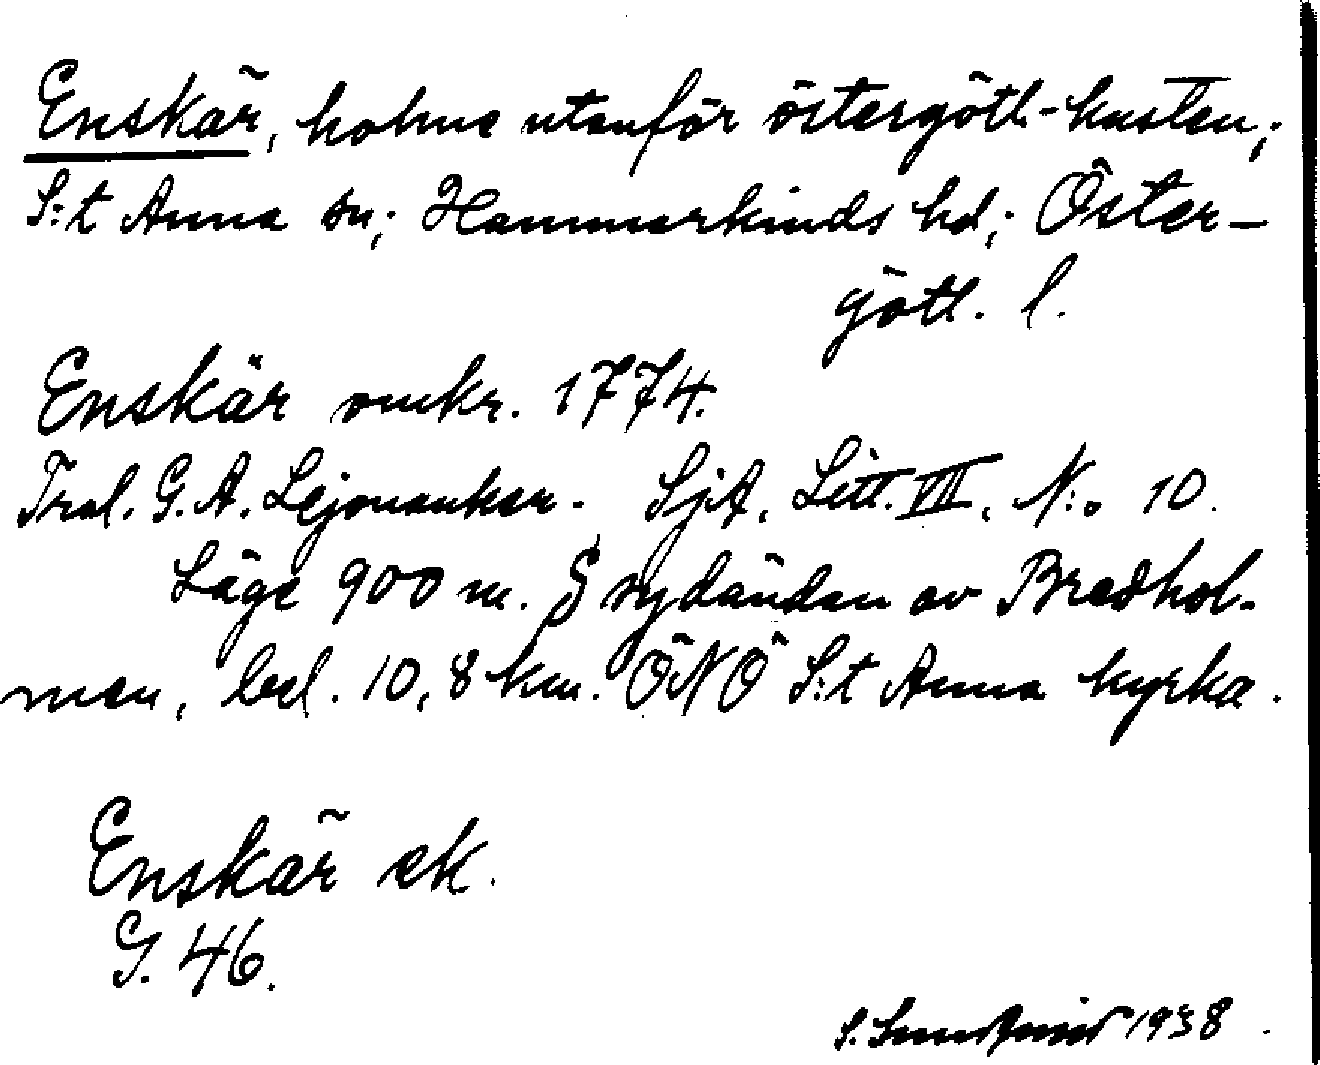 Enskär, holme utanför östergötl.-kusten;
S:t Anna sn; Hammarkinds hd; Öster-
götl. l.
Enskär omkr. 1774.
Trol. G. A. Lejonanker. SjA, Litt. VIII, N:o 10.
Läge 900 m. S sydändan av Bredhol-
men, bel. 10,8 km. ÖNÖ S:t Anna kyrka.
Enskär ek.
G. 46.
S. 1938.